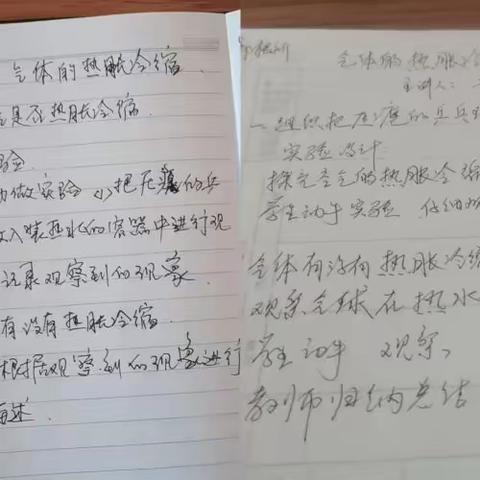 气体的热胀冷缩.
是否热胀冷缩.
验.
动做实验 (1)把压瘪的乒
放入装热水的容器中进行观
记录观察到的现象.
有没有热胀冷缩.
根据观察到的现象进行
描述.
气体的热胀冷
主讲人:
一 组织把压瘪的乒乓
实验设计
探究空气的热胀冷缩
学生动手实验 仔细观
气体有没有热胀冷缩
观察气球在热水
学生动手 观察,
教师归纳总结